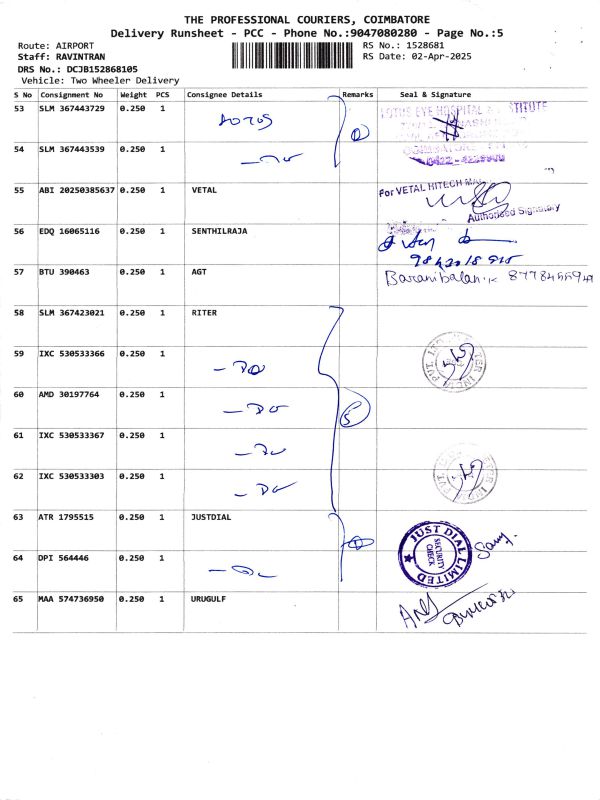 THE PROFESSIONAL COURIERS, COIMBATORE
Delivery Runsheet - PCC - Phone No.:9047080280 - Page No.:5
Route: AIRPORT
Staff: RAVINTRAN
DRS No.: DCJB152868105
Vehicle: Two Wheeler Delivery
RS No.: 1528681
RS Date: 02-Apr-2025
S No Consignment No Weight PCS Consignee Details Remarks Seal & Signature
53 SLM 367443729 0.250 1 LOTUS
LOTUS EYE HOSPITAL & INSTITUTE
54 SLM 367443539 0.250 1
55 ABI 20250385637 0.250 1 VETAL
For VETAL HITECH
Authorised Signatory
56 EDQ 16065116 0.250 1 SENTHILRAJA
57 BTU 390463 0.250 1 AGT
Baranibalan.K
58 SLM 367423021 0.250 1 RITER
59 IXC 530533366 0.250 1 - DO
60 AMD 30197764 0.250 1 - DO
5
61 IXC 530533367 0.250 1 - DO
62 IXC 530533303 0.250 1 - DO
63 ATR 1795515 0.250 1 JUSTDIAL
JUST DIAL LIMITED
SECURITY CHECK
64 DPI 564446 0.250 1
65 MAA 574736950 0.250 1 URUGULF